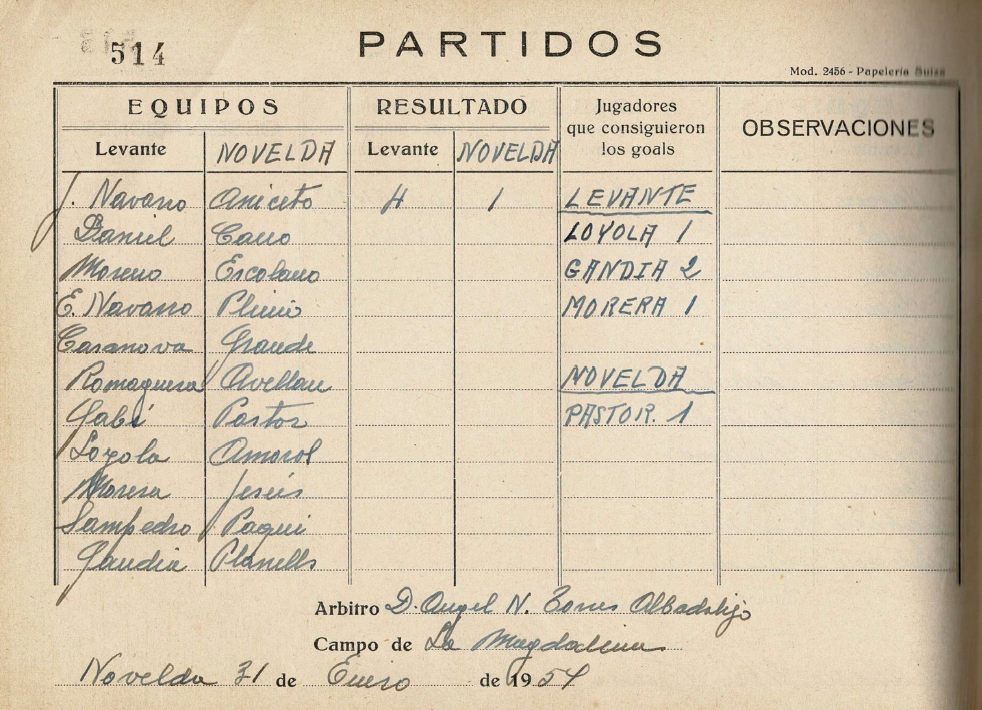 514
PARTIDOS
Mod. 2456 - Papelería Suiza
EQUIPOS RESULTADO Jugadores que consiguieron los goals OBSERVACIONES
Levante NOVELDA Levante NOVELDA
J. Navarro Aniceto 4 1 LEVANTE
Daniel Cano LOYOLA 1
Moreno Escolano GANDIA 2
E. Navarro Plinio MORERA 1
Casanova Grande
Romaguera Avellan NOVELDA
Gabí Pastor PASTOR. 1
Loyola Amorol
Morera Jesús
Sampedro Paqui
Gandia Planells
Arbitro D. Angel N. Torres
Campo de La Magdalena
Novelda 31 de Enero de 1954